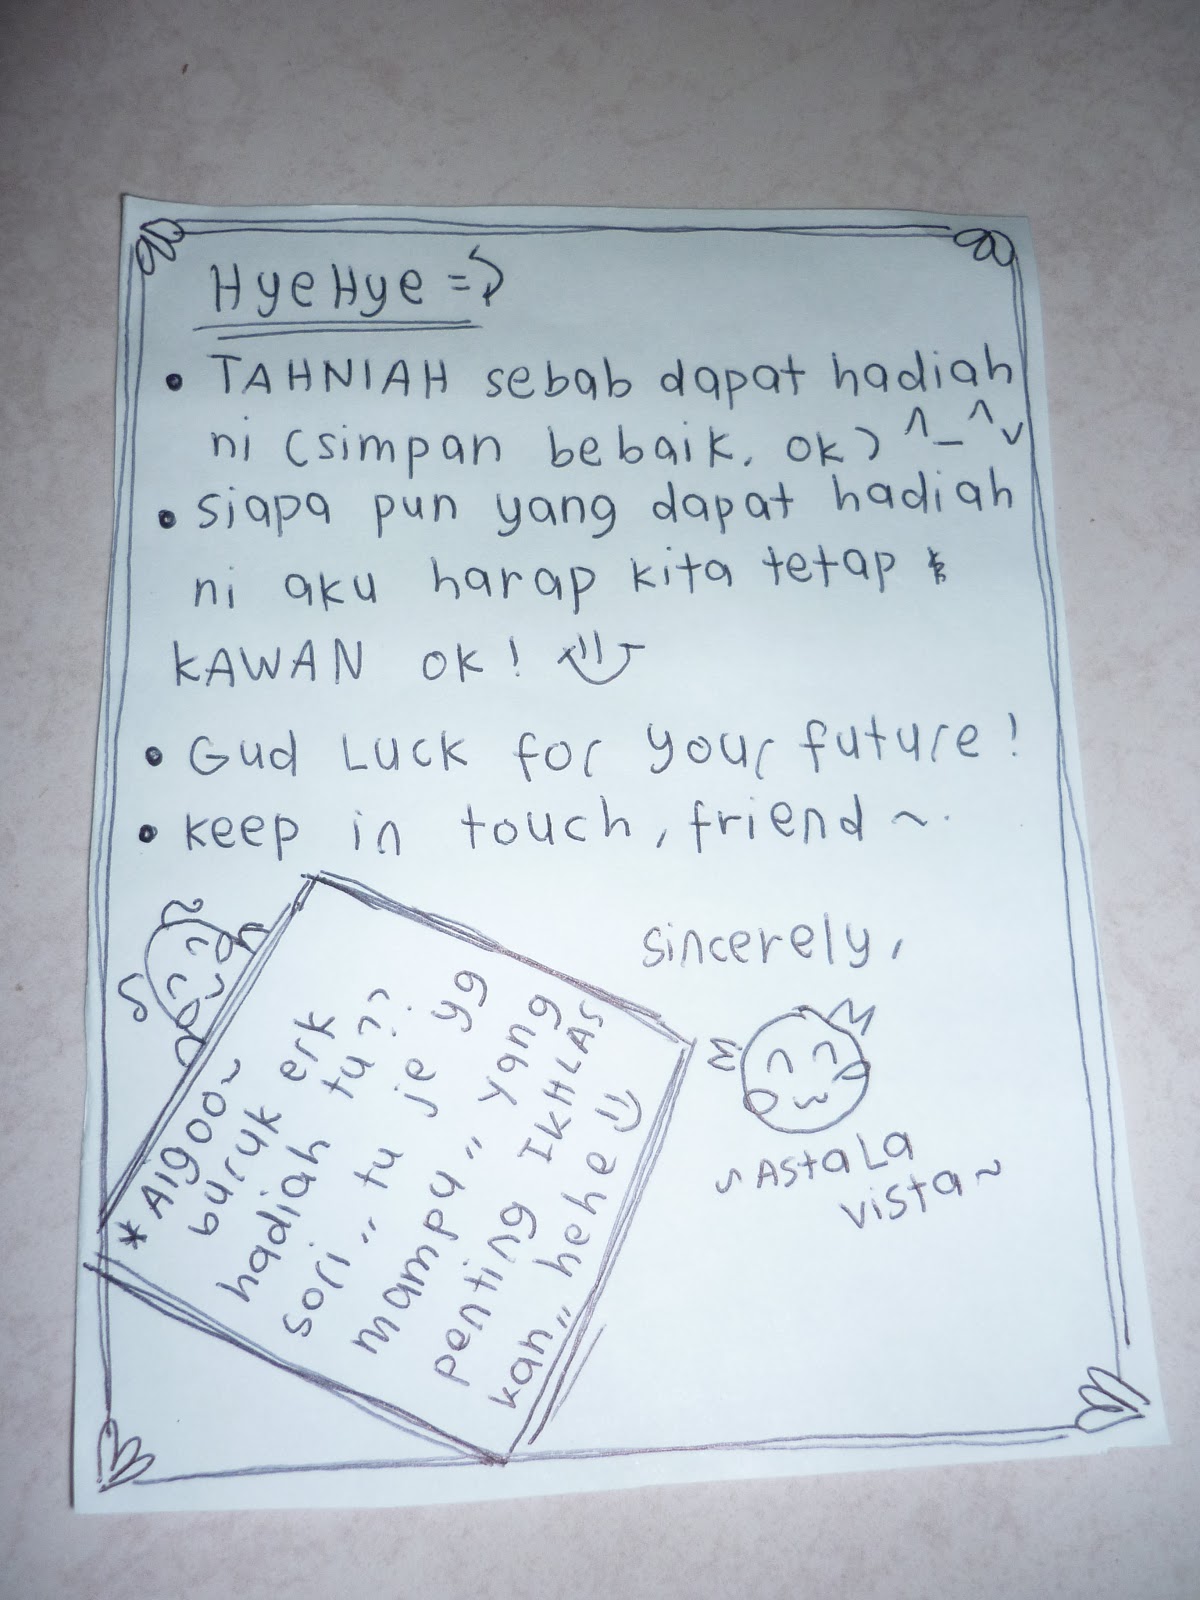 HyeHye =)
• TAHNIAH sebab dapat hadiah
ni (simpan bebaik, ok) ^_^v
• siapa pun yang dapat hadiah
ni aku harap kita tetap
KAWAN ok!
• Gud Luck for your future!
• keep in touch, friend ~.
sincerely,
~ Asta La
vista ~
* Aigoo~
buruk erk
hadiah tu??
sori,, tu je yg
mampu,, yang
penting IKHLAS
kan,, hehe =)